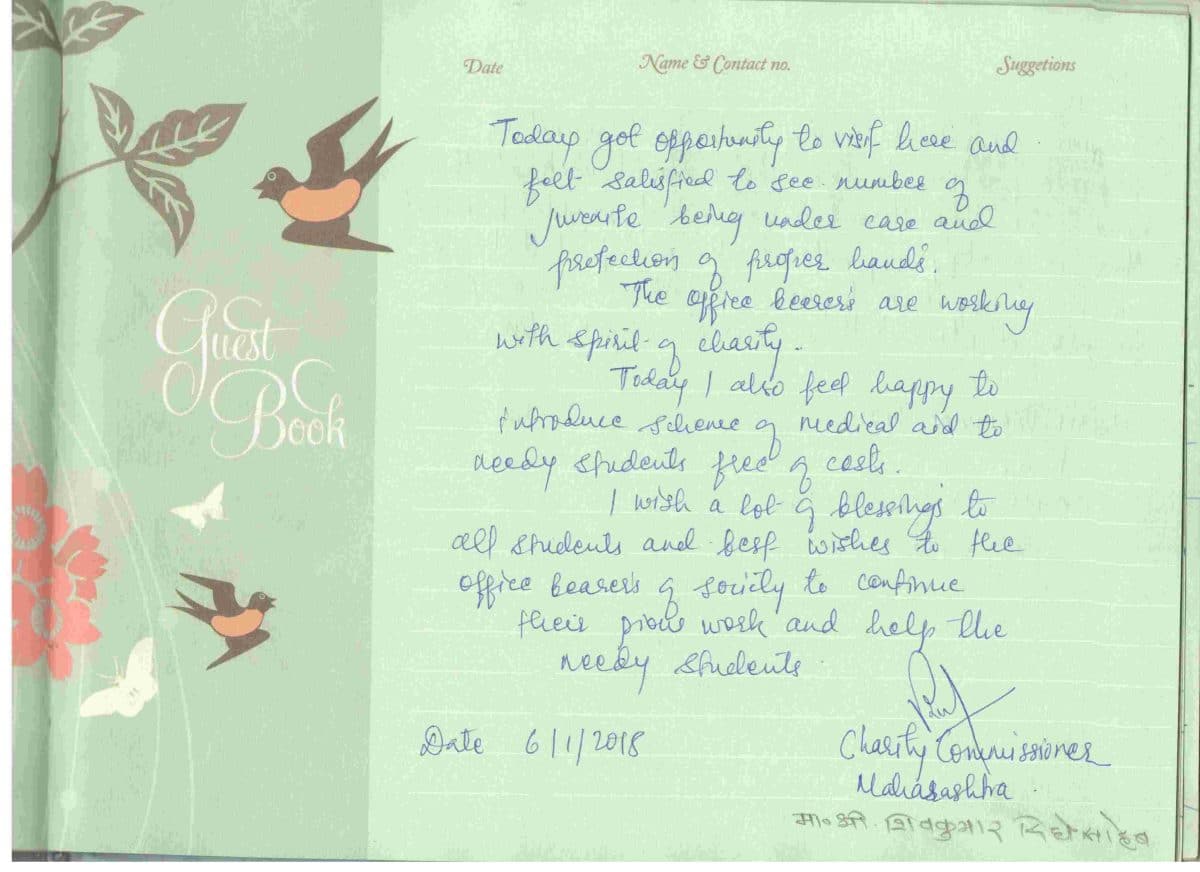 Guest
Book
Date Name & Contact no. Suggetions
Today got opportunity to visit here and
felt satisfied to see number of
juvenile being under care and
protection of proper hands.
The office bearers are working
with spirit of charity.
Today I also feel happy to
introduce scheme of medical aid to
needy students free of costs.
I wish a lot of blessings to
all students and best wishes to the
office bearers of society to continue
their pious work and help the
needy students
Date 6/1/2018
Charity Commissioner
Maharashtra
मा० श्री. शिवकुमार